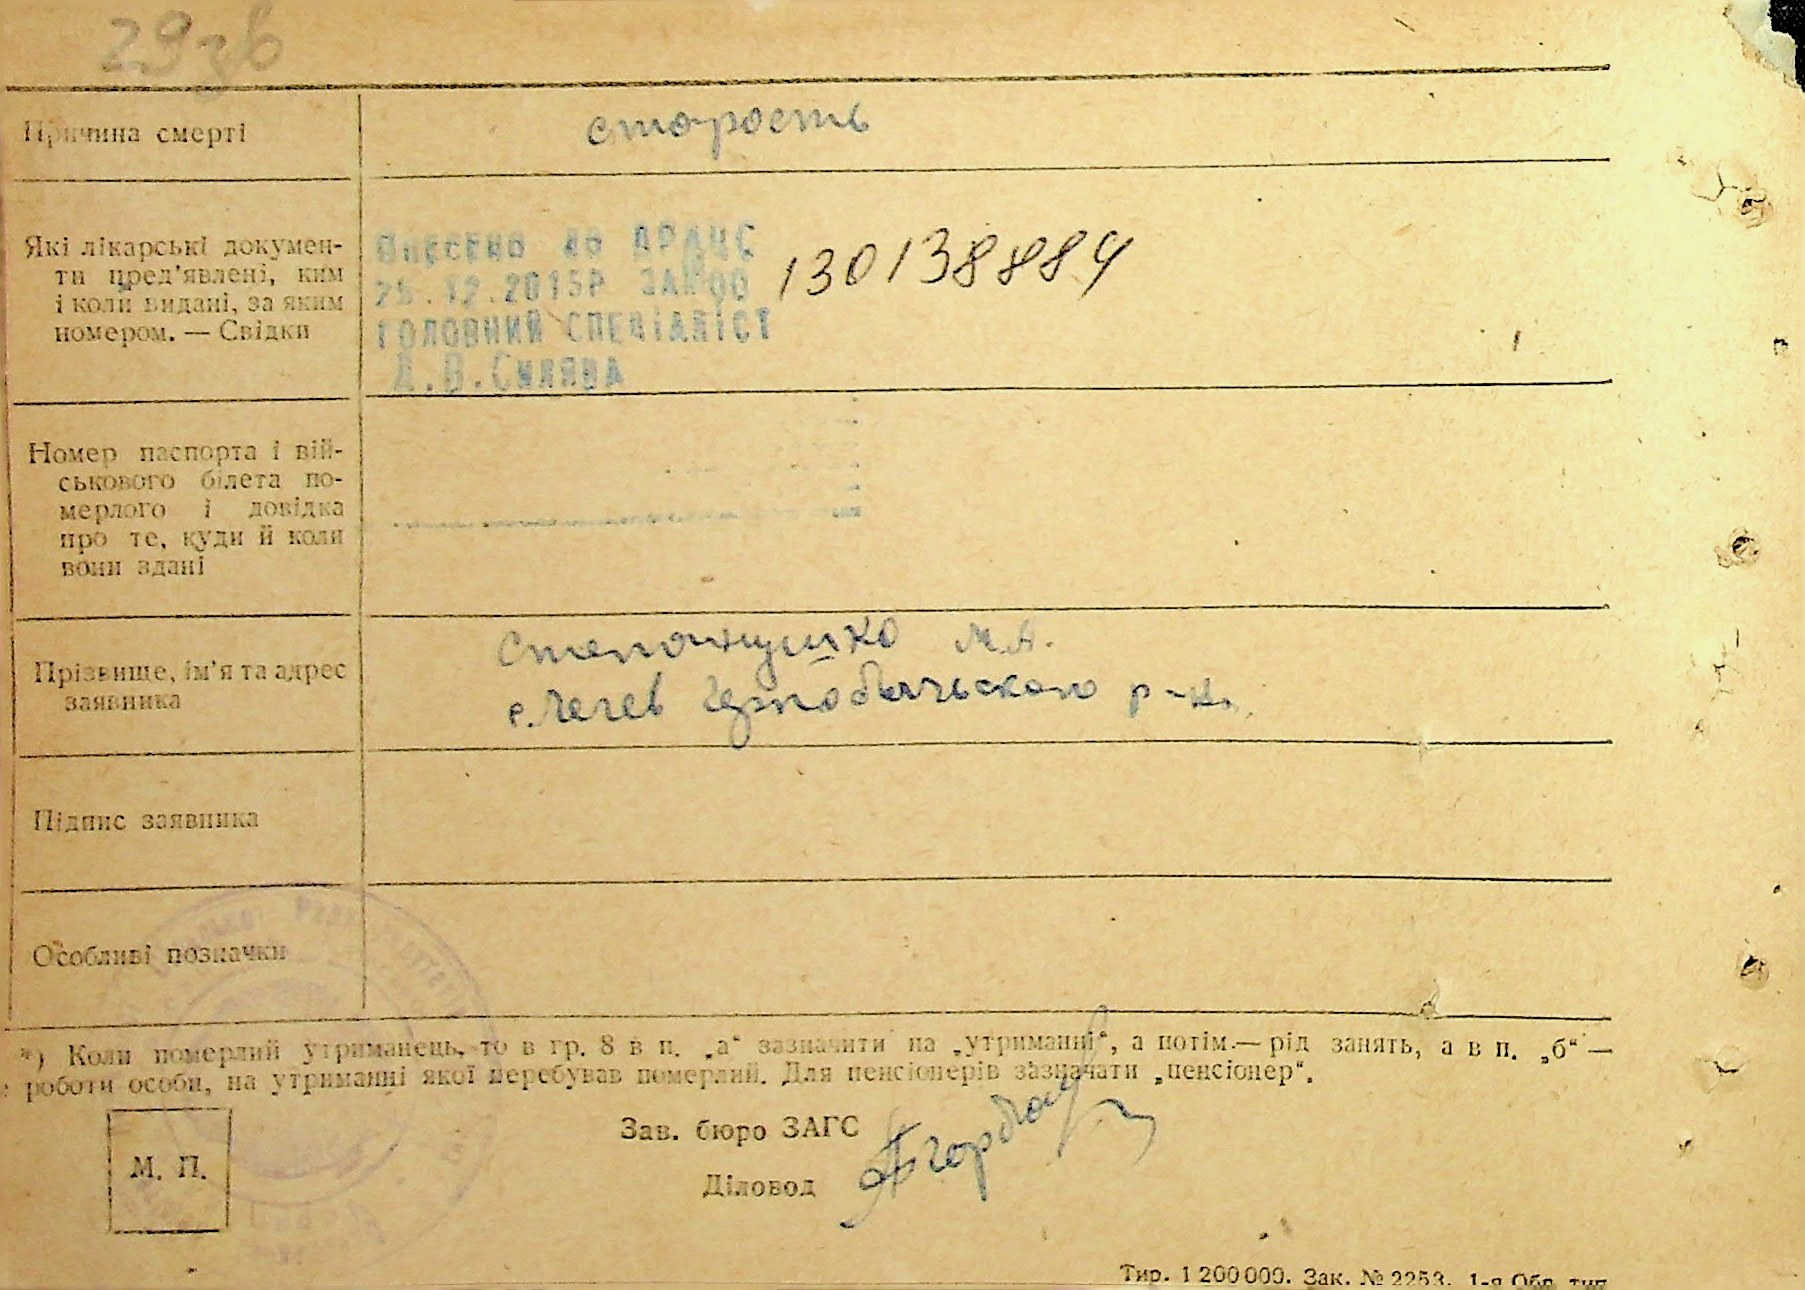 29зв
Причина смерті
старость
Які лікарські докумен-
ти пред'явлені, ким
і коли видані, за яким
номером. — Свідки
Внесено до ДРАЦС
25.12.2015р ЗА №00 130138884
ГОЛОВНИЙ СПЕЦІАЛІСТ
Номер паспорта і вій-
ськового білета по-
мерлого і довідка
про те, куди й коли
вони здані
Прізвище, ім'я та адрес
заявника
Степанушко М.А.
с. Чернобыльского р-на
Підпис заявника
Особливі позначки
*) Коли померлий утриманець, то в гр. 8 в п. „а“ зазначити на „утриманні“, а потім — рід занять, а в п. „б“ —
роботи особи, на утриманні якої перебував померлий. Для пенсіонерів зазначати „пенсіонер“.
М. П.
Зав. бюро ЗАГС
Діловод
Тир. 1 200 000. Зак. № 2253. 1-я Обр. тип.